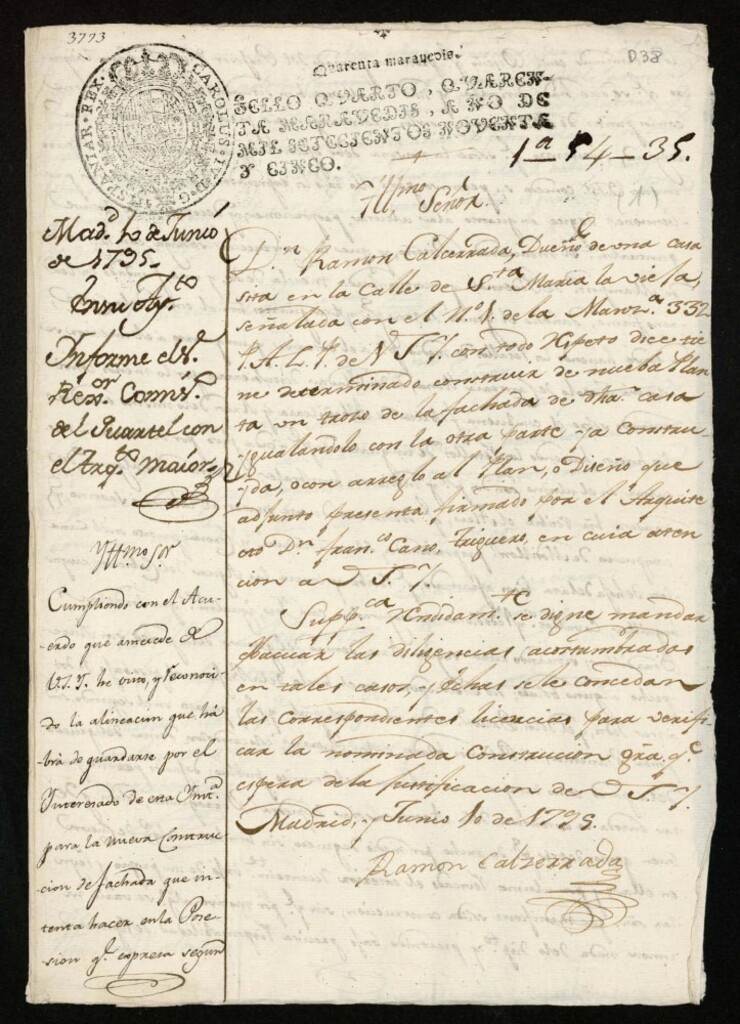 3773
D38
HISPANIAR. REX. CAROLUS. IV. D. G.
Quarenta maravedis.
SELLO QVARTO, QVAREN-
TA MARAVEDIS, AÑO DE
MIL SETECIENTOS NOVENTA
Y CINCO.
1ª 54-35.
Yllmo Señor.
Dn. Ramon Calcerrada, Dueño de una casa
sita en la Calle de Sta Maria la vieja,
señalada con el No. 1. de la Manzna. 332
P. A. L. P. de V. S. Y. con todo Respeto dice tie-
ne determinado construir de nueba Plan-
ta un trozo de la fachada de dha. casa
ygualandolo con la otra parte ya constru-
yda, con arreglo al Plan, o Diseño que
adjunto presenta firmado por el Arquite-
cto Dn. franco. Cano, Triguero, en cuia aten-
cion a V. S. Y.
Suppca. Rendidamte. se digne mandar
evacuar las diligencias acostumbradas
en tales casos, y fechas se le concedan
las Correspondientes licencias para verifi-
car la nominada Construcion gra. qe.
espera de la justificacion de V. S. Y.
Madrid, y Junio 10 de 1795.
Ramon Calzerrada
Madd. 10 de Junio
de 1795.
En su Ayto.
Informe el Sr.
Rexor. Comiso.
del Quartel con
el Arqto. maior.
Yllmo. Sr.
Cumpliendo con el Acu-
erdo que antecede de
V. S. Y. he visto, y reconoci-
do la alineacion que ha-
bra de guardarse por el
Ynteresado de esta Ynsta.
para la nueva Construc-
cion de fachada que in-
tenta hacer en la Pose-
sion qe. expresa segun